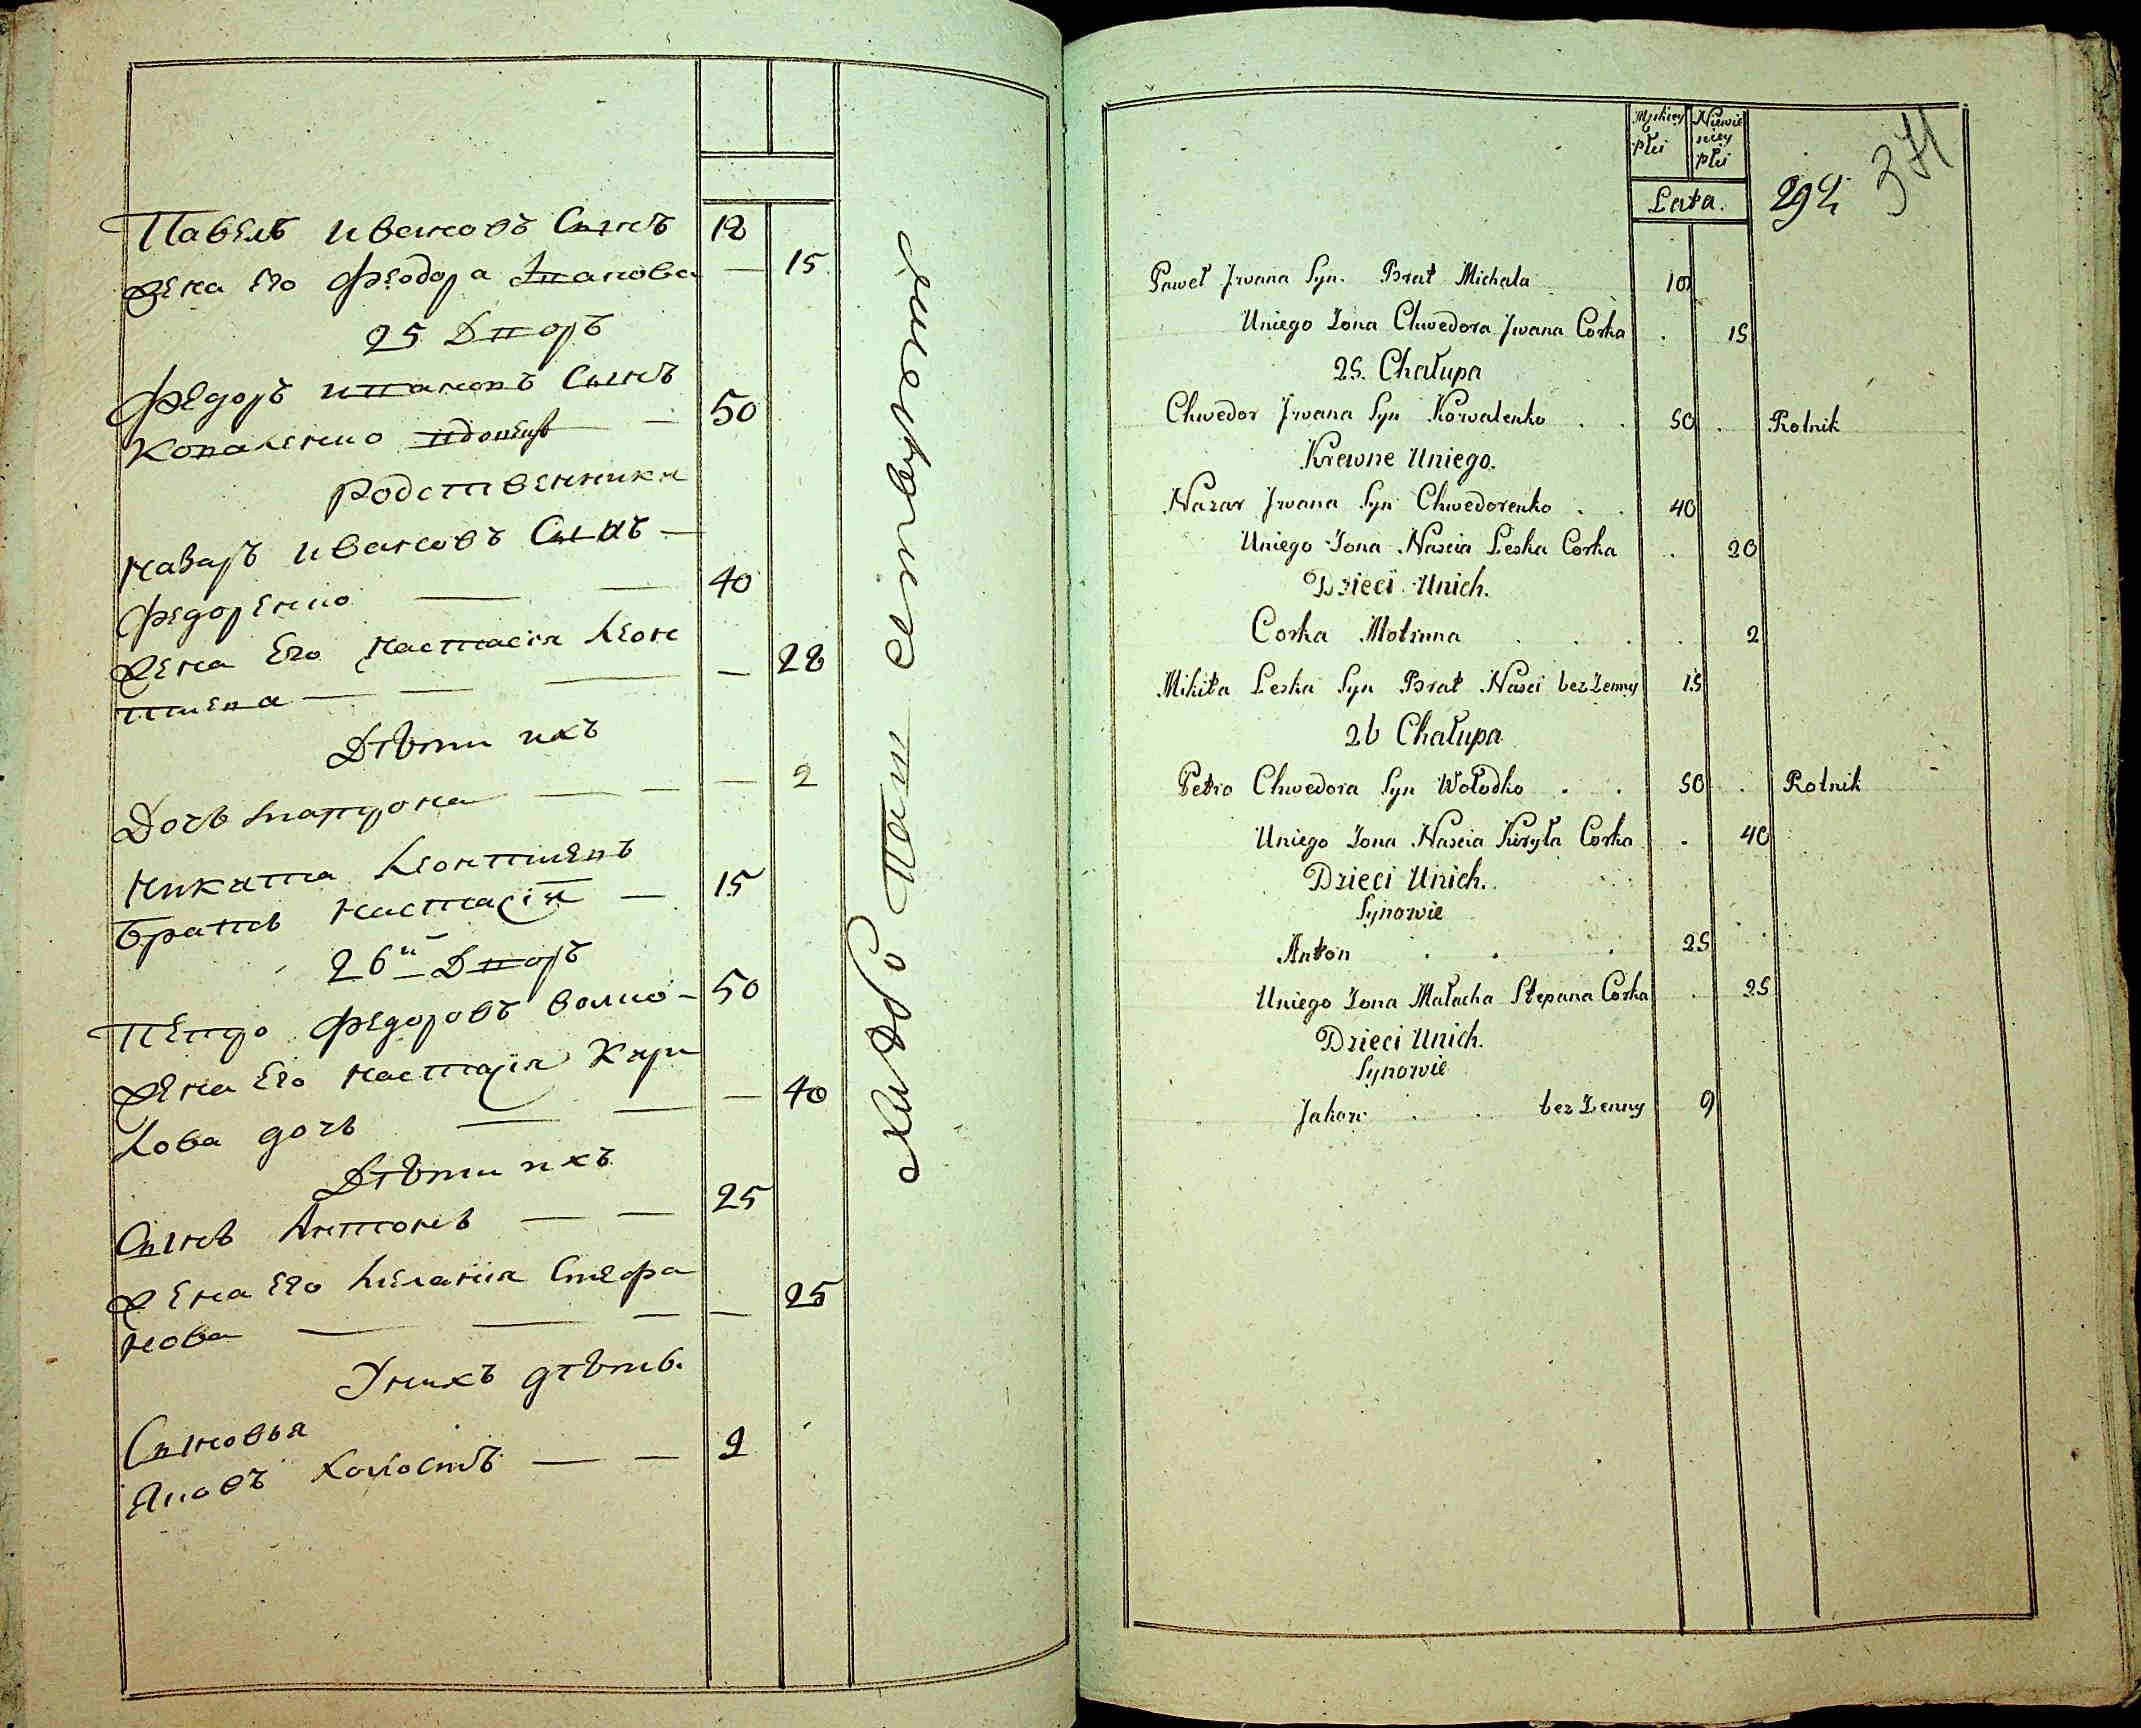 Павелъ Ивановъ Сынъ 18
Жена Его Феодора Иванова — 15
25 Дворъ
Федоръ Ивановъ Сынъ
Коваленко вдовецъ — 50
Родственники
Назаръ Ивановъ Сынъ —
Федоренко — — 40
Жена Его Настасія Леон
тиева — — — — 28
Дѣти ихъ
Дочь Матрона — — — 2
Никита Леонтиевъ
братъ Настасіи — 15
26й Дворъ
Петро Федоровъ Волко — 50
Жена Его Настасія Кири
лова дочь — — — 40
Дѣти ихъ
Сынъ Антонъ — — 25
Жена Его Меланія Стефа
нова — — — — 25
У нихъ дѣти.
Сыновья
Яковъ холостъ — — 9
хлѣбопашествуютъ
Męskiey Płci
Niewieściey Płci
Lata.
294
371
Paweł Jwana Syn. Brat Michała 18
Uniego Żona Chwedora Jwana Corka . 15
25. Chałupa
Chwedor Jwana Syn Kowalenko . . 50 . Rolnik
Krewne Uniego.
Nazar Jwana Syn Chwedorenko . . 40
Uniego Żona Nascia Leska Corka . 20
Dzieci Unich.
Corka Motrnna . . . . 2
Mikita Leska Syn Brat Nasci bez Żenny 15
26 Chałupa
Petro Chwedora Syn Wołodko . . 50 . Rolnik
Uniego Żona Nascia Kiryła Corka . 40
Dzieci Unich.
Synowie
Anton . . . 25
Uniego Żona Małacha Stepana Corka . 25
Dzieci Unich.
Synowie
Jakow . . bez Żenny 9